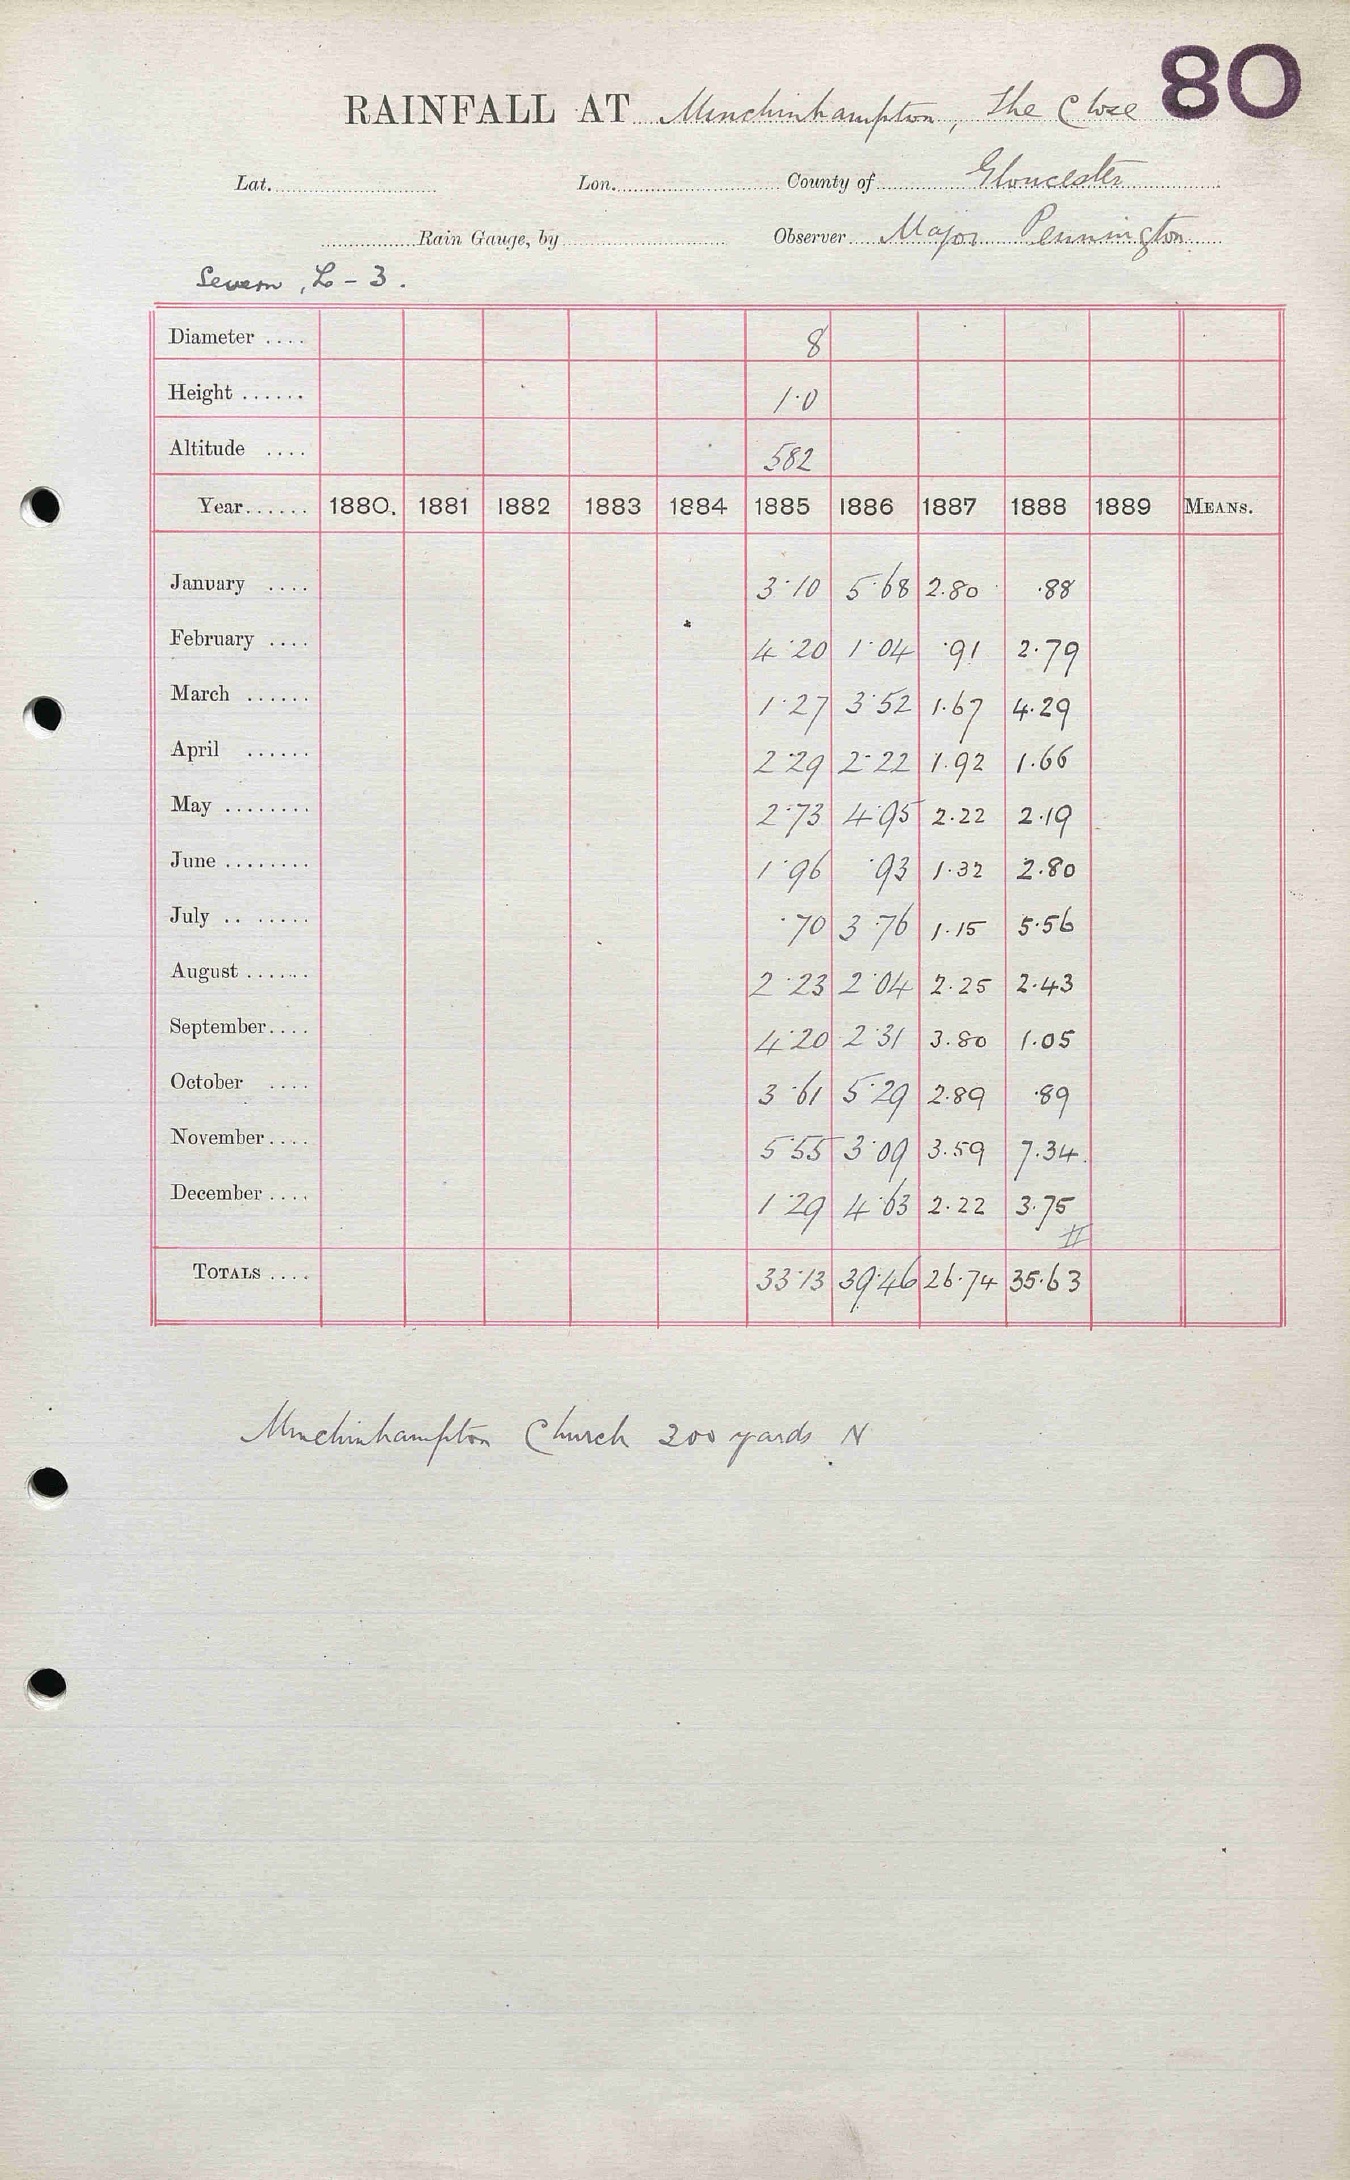 80
RAINFALL AT Minchinhampton, The Close
Lat. Lon. County of Gloucester
Rain Gauge, by Observer Major Pennington
Severn, L-3.
Diameter .... 8
Height ...... 1·0
Altitude .... 582
Year...... 1880. 1881 1882 1883 1884 1885 1886 1887 1888 1889 MEANS.
January .... 3·10 5·68 2.80 ·88
February .... 4·20 1·04 ·91 2.79
March ...... 1·27 3·52 1.67 4.29
April ...... 2·29 2·22 1.92 1.66
May ........ 2·73 4·95 2.22 2.19
June ........ 1·96 ·93 1.32 2.80
July .. ...... ·70 3·76 1.15 5.56
August ...... 2·23 2·04 2.25 2.43
September.... 4·20 2·31 3.80 1.05
October .... 3·61 5·29 2.89 ·89
November.... 5·55 3·09 3.59 7.34
December .... 1·29 4·63 2.22 3.75
TOTALS .... 33·13 39·46 26.74 35.63
Minchinhampton Church 200 yards N